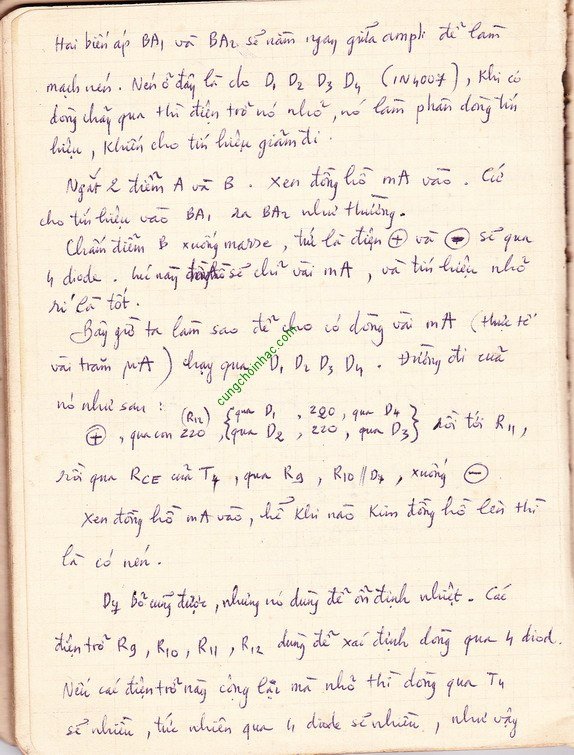 Hai biến áp BA1 và BA2 sẽ nằm ngay giữa ampli để làm
mạch nén. Nén ở đây là cho D1 D2 D3 D4 (1N4007), khi có
dòng chảy qua thì điện trở nó nhỏ, nó làm phân dòng tín
hiệu, khiến cho tín hiệu giảm đi.
Ngắt 2 điểm A và B. Xen đồng hồ mA vào. Cứ
cho tín hiệu vào BA1 ra BA2 như thường.
Chấm điểm B xuống masse, tức là điện ⊕ và ⊖ sẽ qua
4 diode. lúc này sẽ chỉ vài mA, và tín hiệu nhỏ
rí là tốt.
Bây giờ ta làm sao để cho có dòng vài mA (thực tế
vài trăm µA) chạy qua D1 D2 D3 D4. Đường đi của
cungchoinhac.com
nó như sau:
⊕, qua con 220 (R12), {qua D1, 220, qua D4
qua D2, 220, qua D3} rồi tới R11,
rồi qua RCE của T4, qua R9, R10 // D7, xuống ⊖
Xen đồng hồ mA vào, hễ khi nào kim đồng hồ lên thì
là có nén.
D7 bỏ cũng được, nhưng nó dùng để ổn định nhiệt. Các
điện trở R9, R10, R11, R12 dùng để xác định dòng qua 4 diod.
Nếu các điện trở này cộng lại mà nhỏ thì dòng qua T4
sẽ nhiều, tức nhiên qua 4 diode sẽ nhiều, như vậy